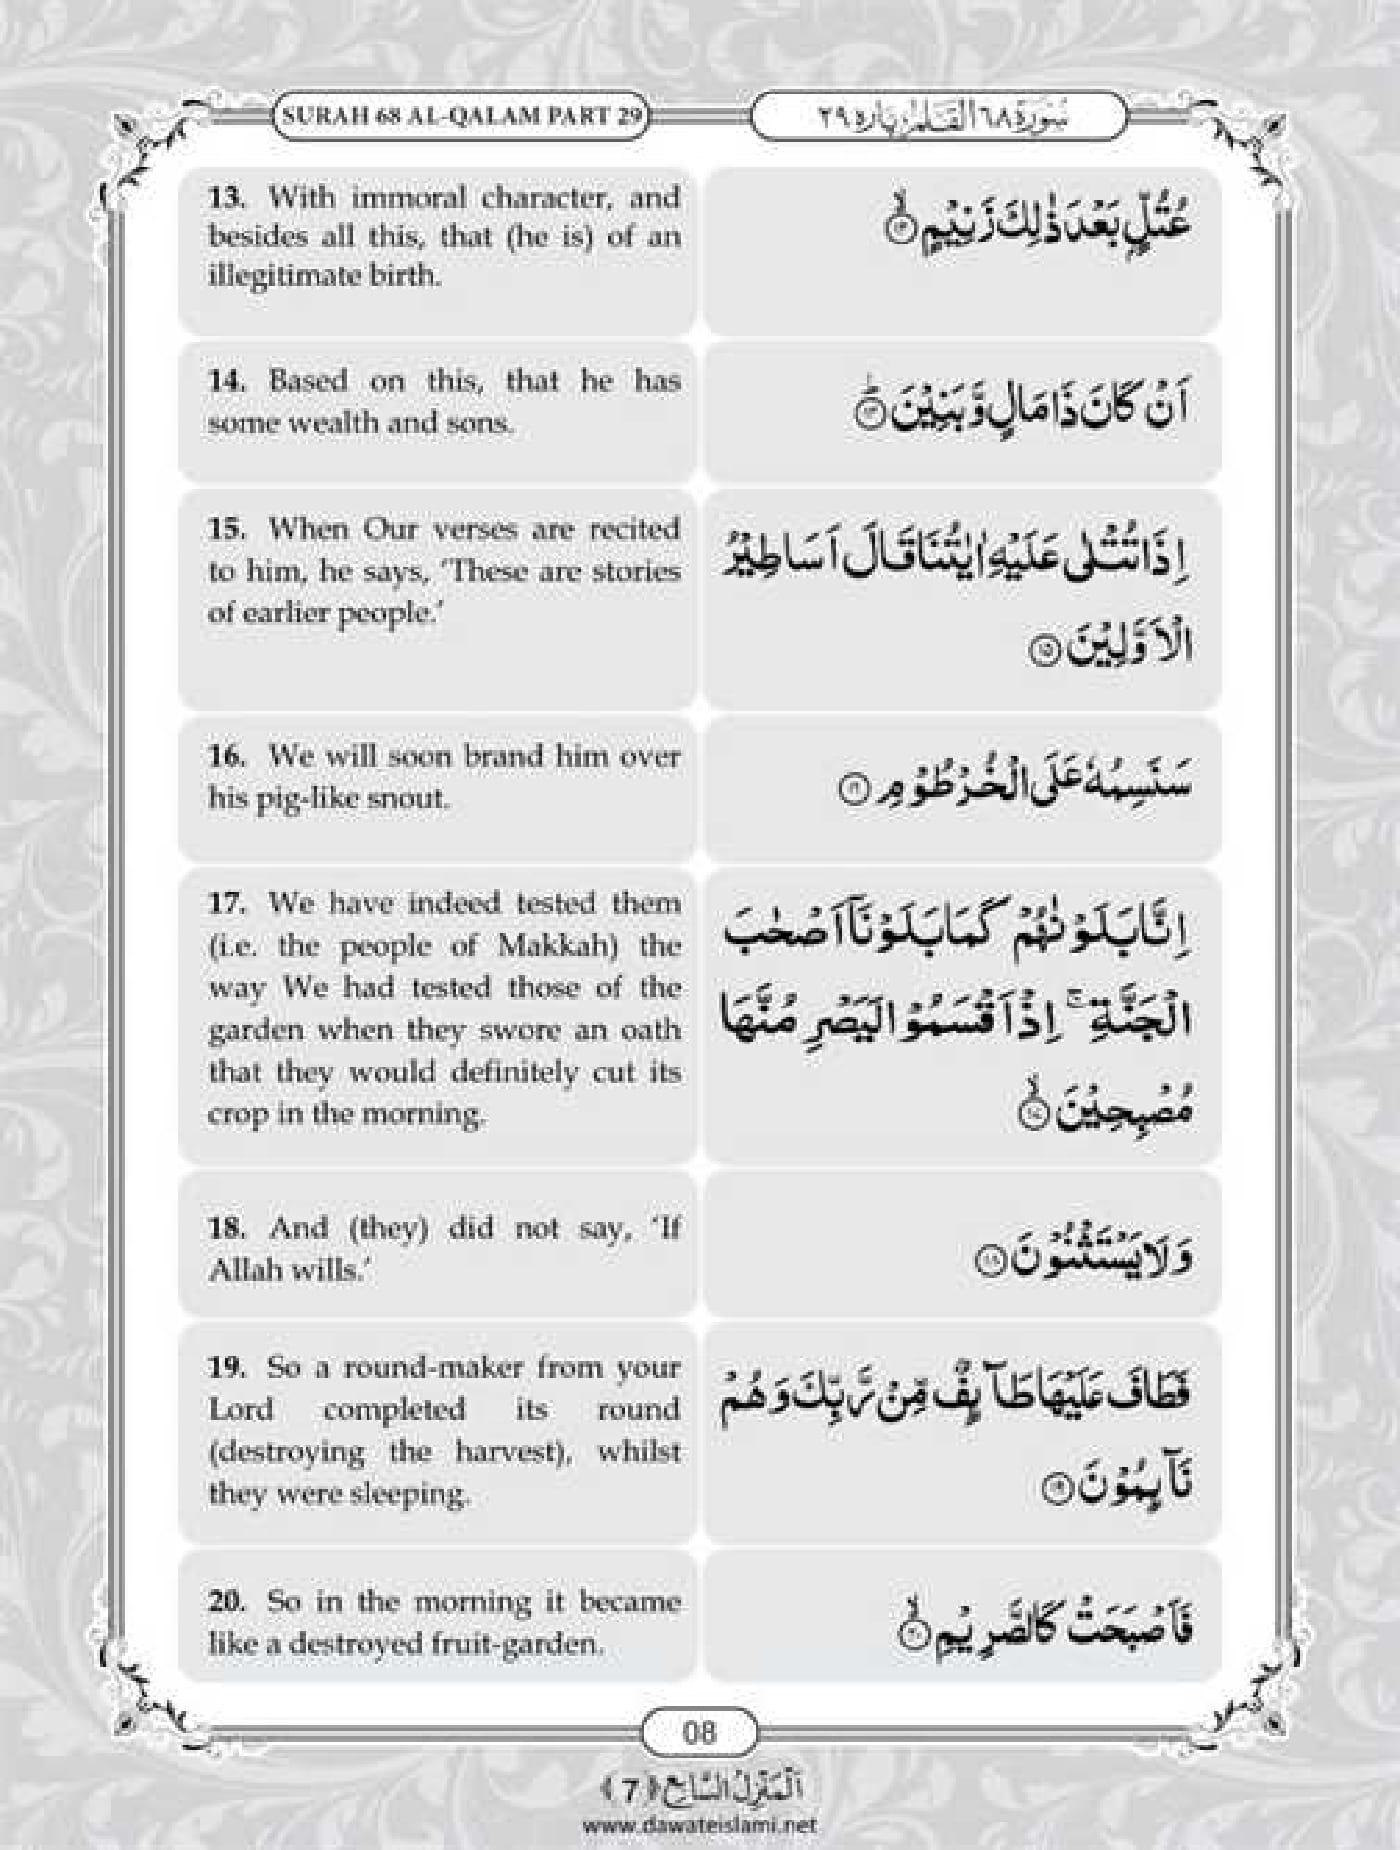 SURAH 68 AL-QALAM PART 29
سُوْرَةُ ٦٨ الْقَلَمِ پاره ٢٩
13. With immoral character, and
besides all this, that (he is) of an
illegitimate birth.
عُتُلٍّۭ بَعْدَ ذٰلِكَ زَنِيْمٍ ۙ﴿١٣﴾
14. Based on this, that he has
some wealth and sons.
اَنْ كَانَ ذَا مَالٍ وَّ بَنِيْنَ ؕ﴿١٤﴾
15. When Our verses are recited
to him, he says, ‘These are stories
of earlier people.’
اِذَا تُتْلٰى عَلَيْهِ اٰيٰتُنَا قَالَ اَسَاطِيْرُ
الْاَوَّلِيْنَ ﴿١٥﴾
16. We will soon brand him over
his pig-like snout.
سَنَسِمُهٗ عَلَى الْخُرْطُوْمِ ﴿١٦﴾
17. We have indeed tested them
(i.e. the people of Makkah) the
way We had tested those of the
garden when they swore an oath
that they would definitely cut its
crop in the morning.
اِنَّا بَلَوْنٰهُمْ كَمَا بَلَوْنَاۤ اَصْحٰبَ
الْجَنَّةِ ۚ اِذْ اَقْسَمُوْا لَيَصْرِمُنَّهَا
مُصْبِحِيْنَ ۙ﴿١٧﴾
18. And (they) did not say, ‘If
Allah wills.’
وَ لَا يَسْتَثْنُوْنَ ﴿١٨﴾
19. So a round-maker from your
Lord completed its round
(destroying the harvest), whilst
they were sleeping.
فَطَافَ عَلَيْهَا طَآىِٕفٌ مِّنْ رَّبِّكَ وَ هُمْ
نَآىِٕمُوْنَ ﴿١٩﴾
20. So in the morning it became
like a destroyed fruit-garden.
فَاَصْبَحَتْ كَالصَّرِيْمِ ۙ﴿٢٠﴾
08
اَلْمَنْزِلُ السَّابِع ﴿7﴾
www.dawateislami.net